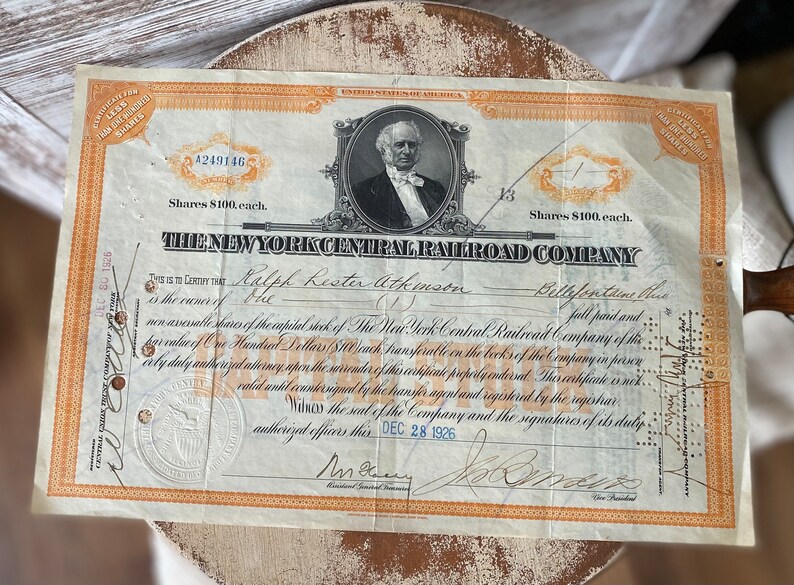 UNITED STATES OF AMERICA
CERTIFICATE FOR
LESS
THAN ONE HUNDRED
SHARES
CERTIFICATE FOR
LESS
THAN ONE HUNDRED
SHARES
A249146
NUMBER
1
Shares $100. each.
13
Shares $100. each.
THE NEW YORK CENTRAL RAILROAD COMPANY
THIS IS TO CERTIFY THAT Ralph Lester Atkinson Bellefontaine Ohio
is the owner of One (1) full paid and
non assessable shares of the capital stock of The New York Central Railroad Company of the
par value of One Hundred Dollars ($100) each, transferable on the books of the Company in person
or by duly authorized agency, upon the surrender of this certificate properly endorsed. This certificate is not
valid until countersigned by the transfer agent and registered by the registrar.
Witness the seal of the Company and the signatures of its duly
authorized officers this DEC 28 1926
CAPITAL STOCK
Assistant General Treasurer
Vice President
DEC 30 1926
REGISTERED
CENTRAL UNION TRUST COMPANY OF NEW YORK
TRANSFER AGENT